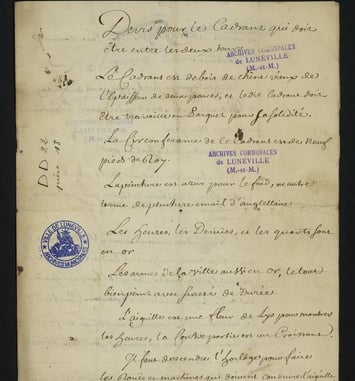 Devis pour le Cadrant qui doit
être entre les deux tours.
ARCHIVES COMMUNALES
DE LUNÉVILLE
(M.-et-M.)
Le Cadrant est de bois de chêne vieux de
l'Epaisseur de deux pouces, et le dit cadrant doit
être travaillé en Parquet pour sa solidité.
La Circonférance de le Cadrant est de Neuf
pieds de Roy.
ARCHIVES COMMUNALES
DE LUNÉVILLE
(M.-et-M.)
DD 22
pièce 18
La peinture est azur pour le fond, en autre
terme de peinture email d'anglettere.
VILLE DE LUNÉVILLE
Les heures, les Demies, et les quarts sont
en or.
Les armes de la ville aussi en or, le tout
bien peint avec sureté de Durée.
L'aiguille est une fleur de Lys pour montrer
les heures, la Contre partie est un Croissant.
Il faut descendre l'horloge pour faire
les et machines qui doivent conduire l'aiguille